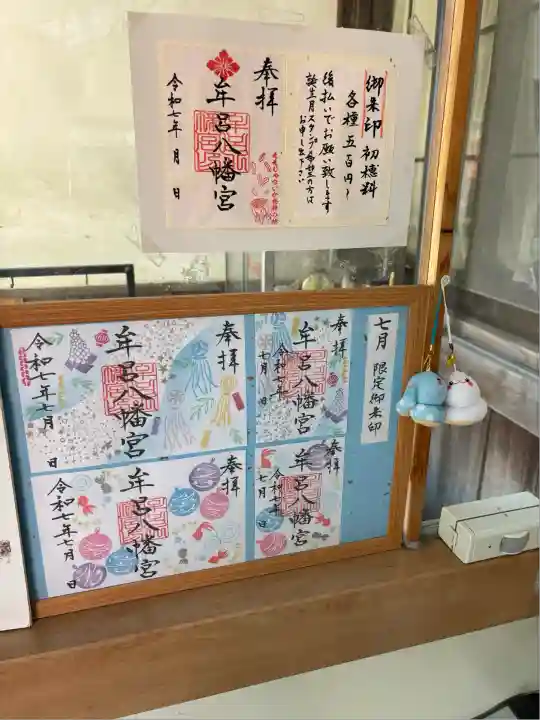 御朱印 初穂料
各種 五百円〜
後払いでお願い致します
誕生月スタンプ希望の方は
お申し出下さい
奉拝
牟呂八幡宮
令和七年 月 日
七月 限定御朱印
奉拝
牟呂八幡宮
令和七年七月 日
奉拝
牟呂八幡宮
令和七年
七月 日
奉拝
牟呂八幡宮
令和七年七月 日
奉拝
牟呂八幡宮
令和七年
七月 日